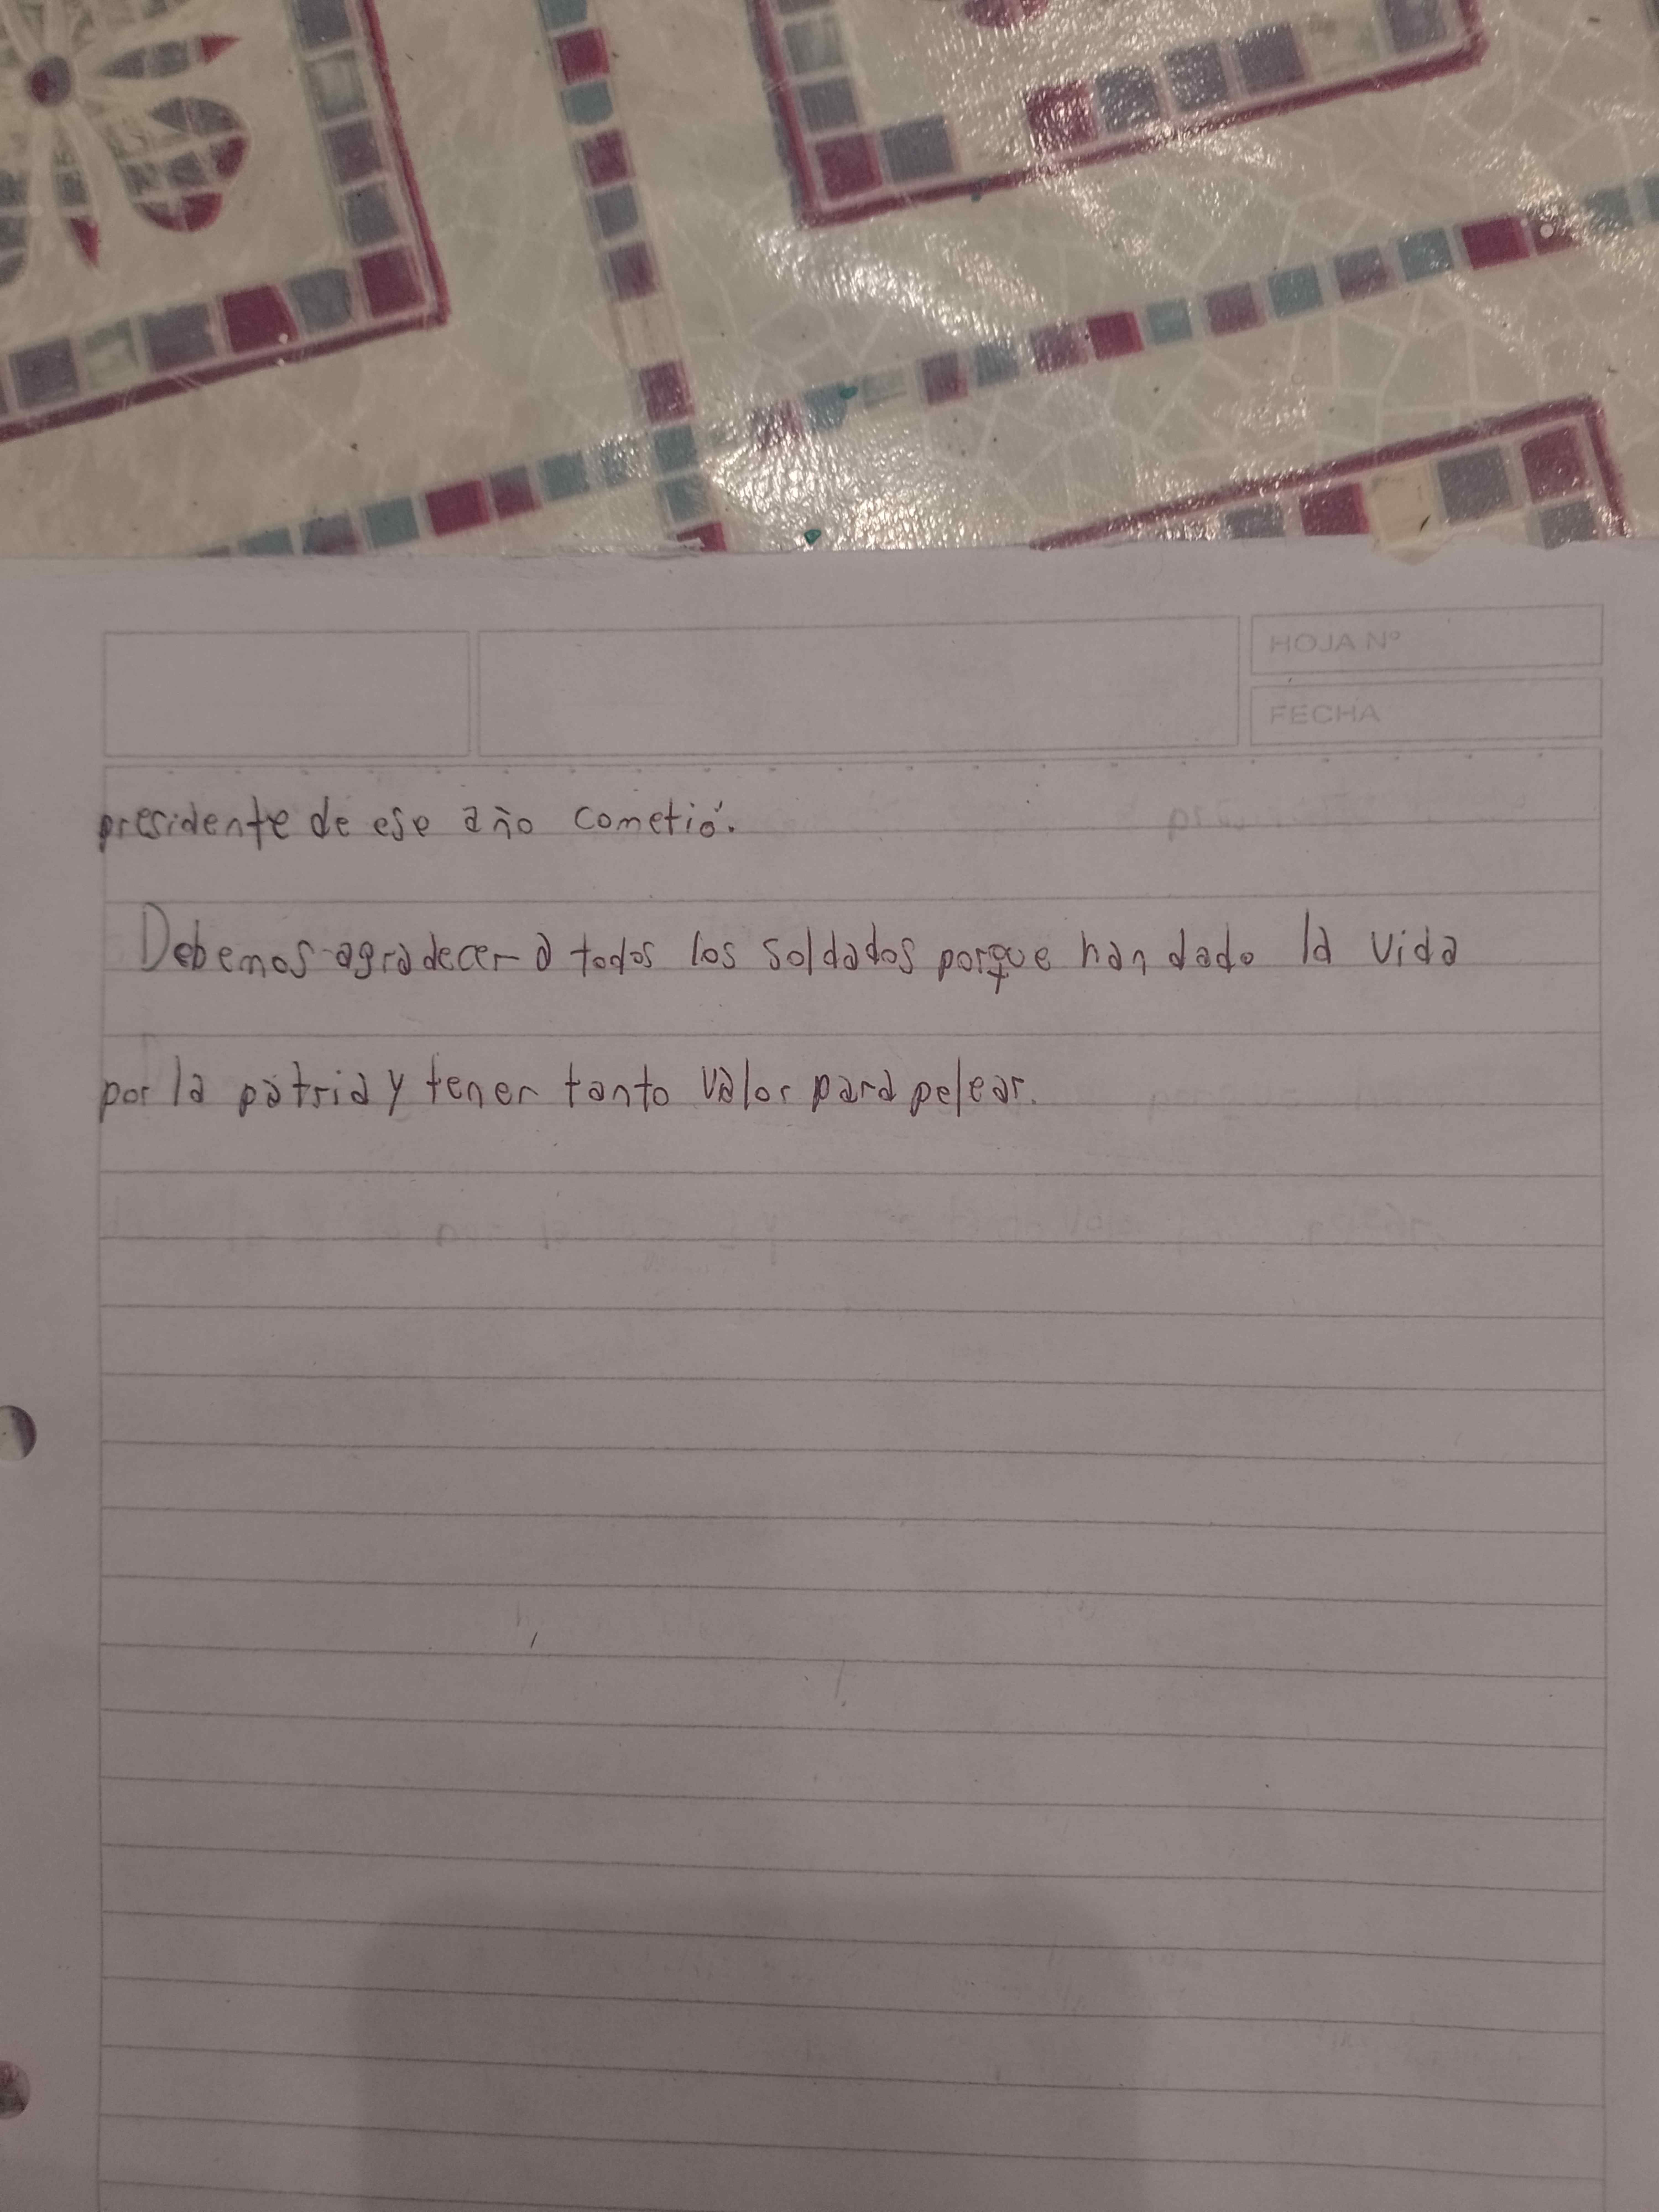 HOJA Nº
FECHA
presidente de ese año cometió.
Debemos agradecer a todos los soldados porque han dado la vida
por la patria y tener tanto valor para pelear.